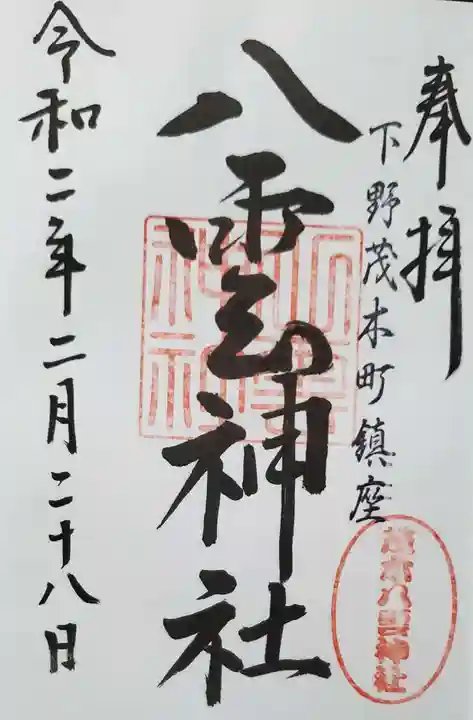 奉拝
下野茂木町鎮座
八雲神社
令和二年二月二十八日
八雲神社
茂木八雲神社